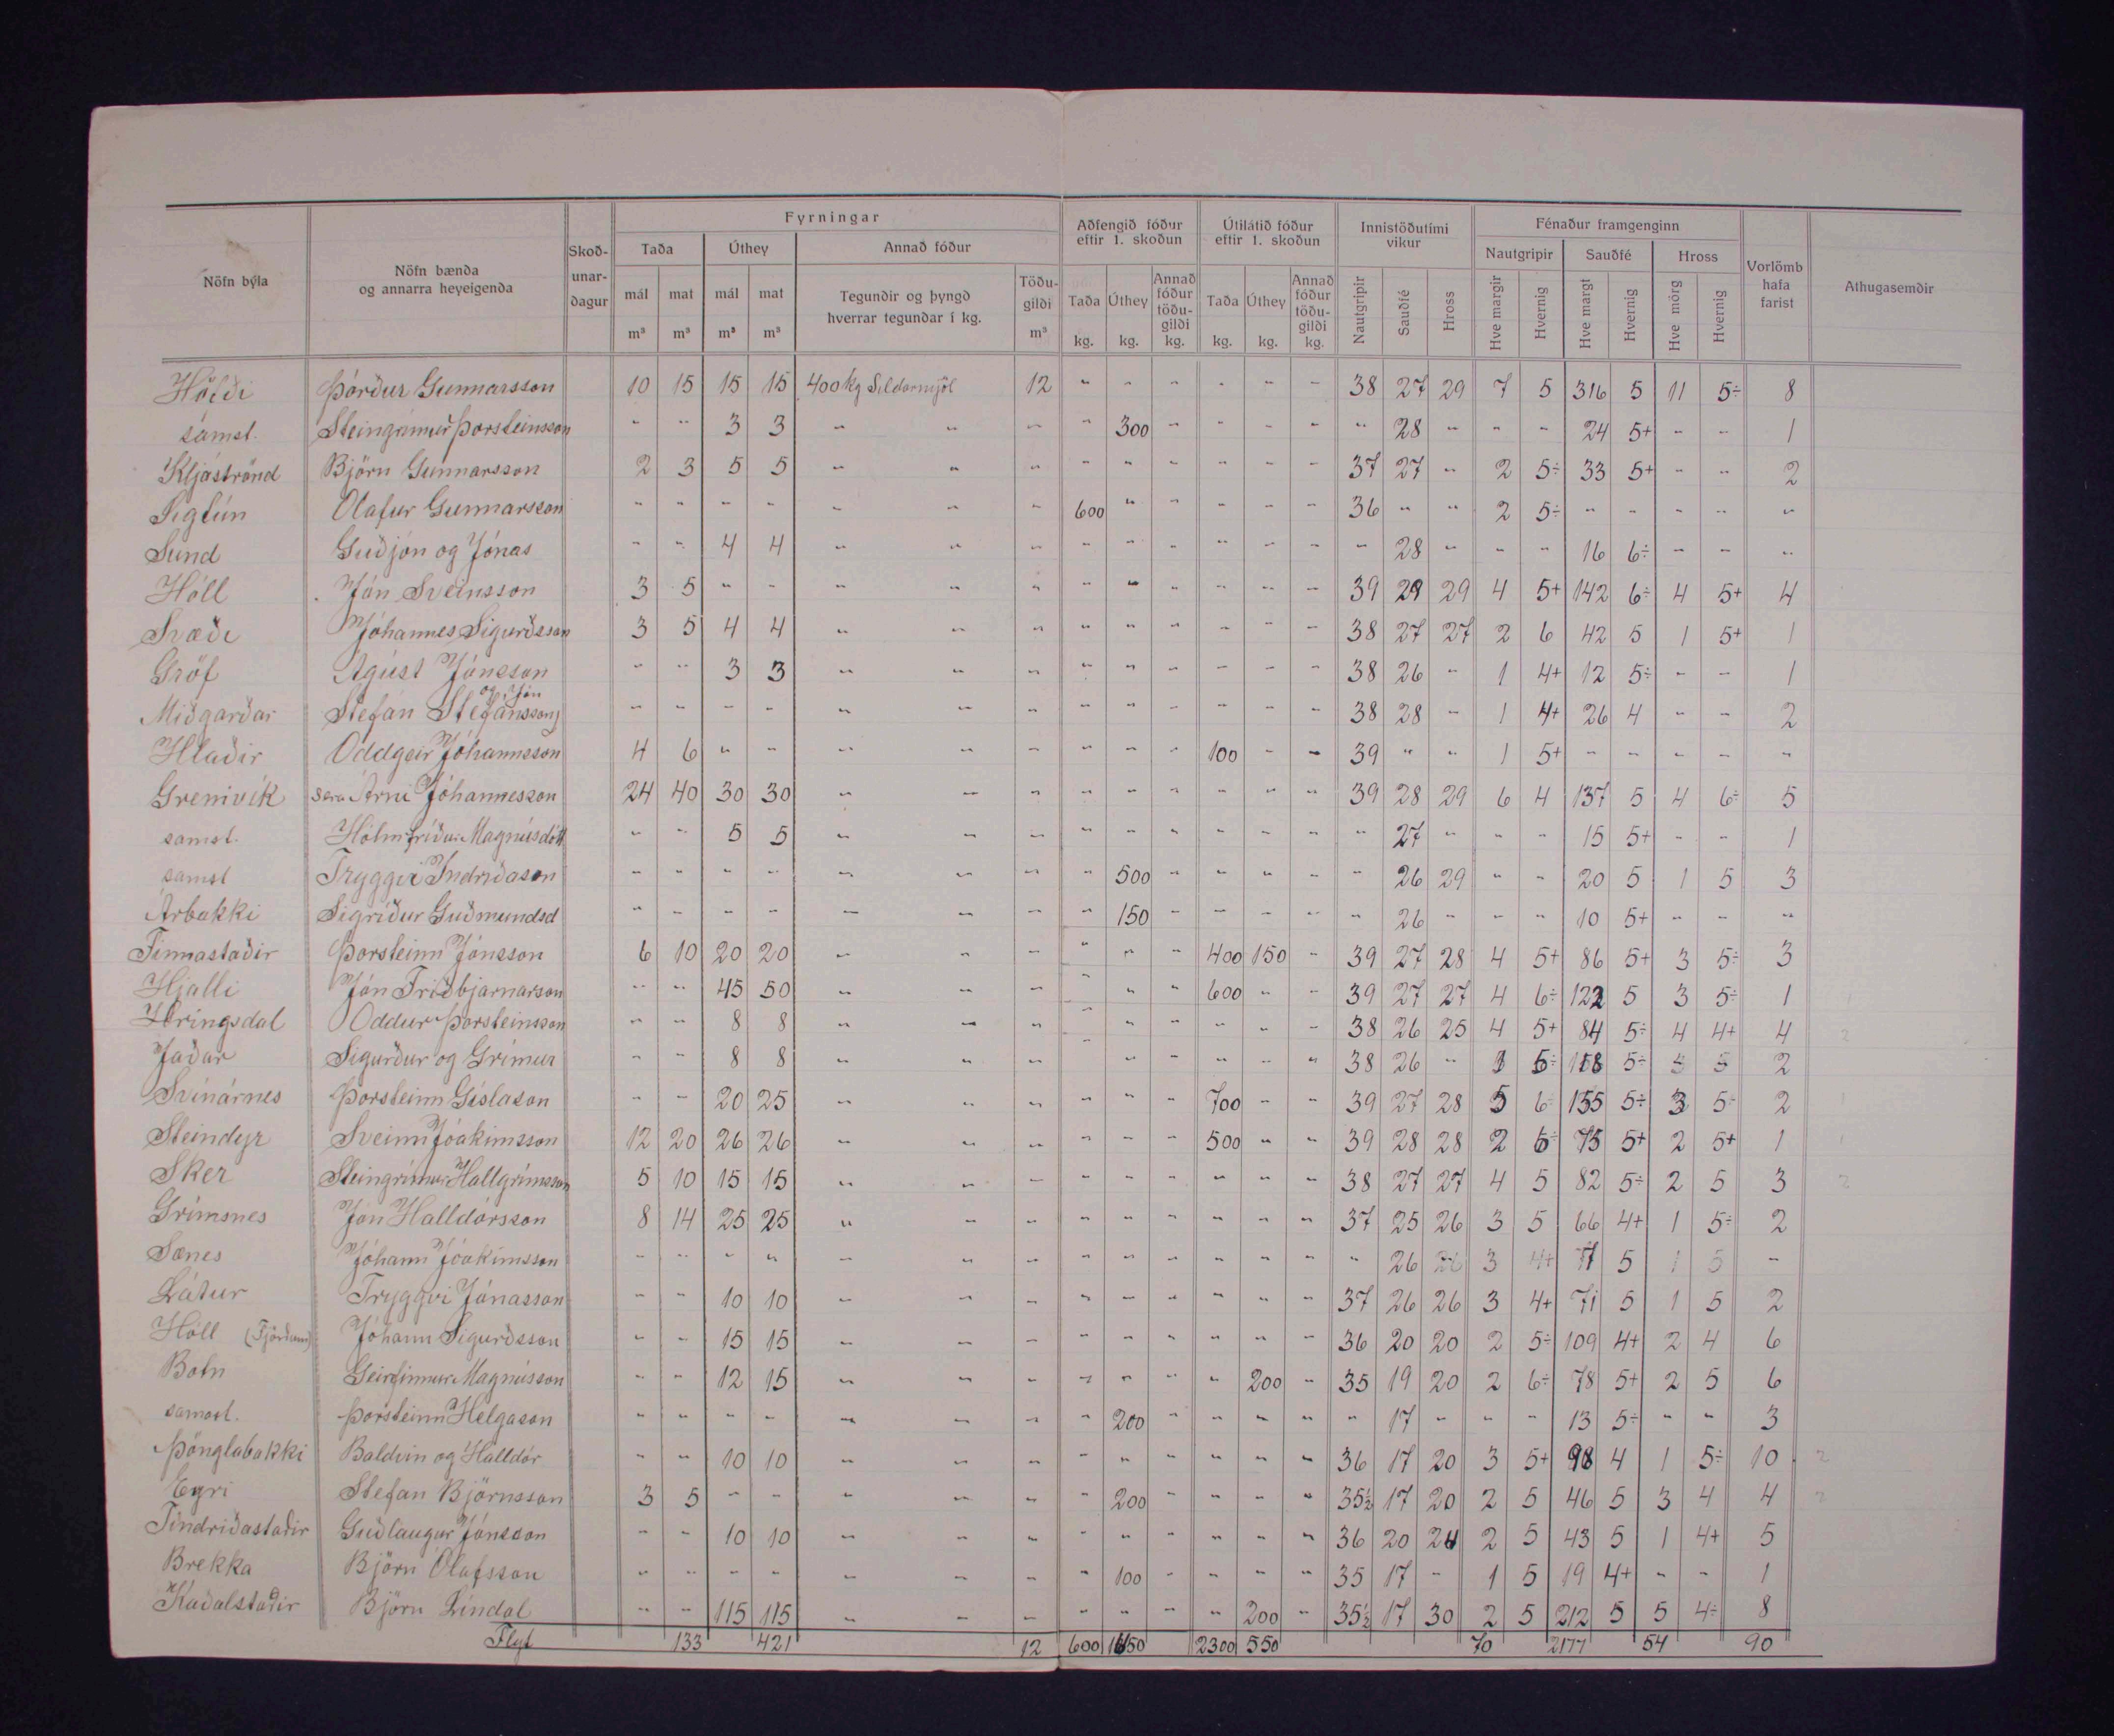 Fyrningar
Aðfengið fóður eftir 1. skoðun
Útilátið fóður eftir 1. skoðun
Innistöðutími vikur
Fénaður framgenginn
Nöfn býla
Nöfn bænda og annarra heyeigenda
Skoð-unar-dagur
Taða Úthey Annað fóður
Nautgripir Sauðfé Hross
Vorlömb hafa farist
Athugasemdir
mál mat mál mat Tegundir og þyngd hverrar tegundar í kg. Töðu-gildi
Taða Úthey Annað fóður töðu-gildi Taða Úthey Annað fóður töðu-gildi
Nautgripir Sauðfé Hross Hve margir Hvernig Hve margt Hvernig Hve mörg Hvernig
m³ m³ m³ m³ m³ kg. kg. kg. kg. kg. kg.
Höfði Þórður Gunnarsson 10 15 15 15 400 kg Síldarmjöl 12 " " " " " - 38 27 29 7 5 316 5 11 5÷ 8
samst. Steingrímur Þorsteinsson " " 3 3 " " " " 300 " " " " " 28 " " " 24 5+ " " 1
Kljáströnd Björn Gunnarsson 2 3 5 5 " " " " " " " " " 37 27 " 2 5÷ 33 5+ " " 2
Sigtún Ólafur Gunnarsson " " " " " " " 600 " " " " " 36 " " 2 5÷ " " " " "
Sund Guðjón og Jónas " " 4 4 " " " " " " " " " " 28 " " " 16 6÷ " " "
Höll Jón Sveinsson 3 5 " " " " " " " " " " " 39 29 29 4 5+ 142 6÷ 4 5+ 4
Svæði Jóhannes Sigurðsson 3 5 4 4 " " " " " " " " " 38 27 27 2 6 42 5 1 5+ 1
Gröf Ágúst Jónsson " " 3 3 " " " " " " " " " 38 26 " 1 4+ 12 5÷ " " 1
Miðgarðar Stefán og Jón Stefánssony " " " " " " " " " " " " " 38 28 " 1 4+ 26 4 " " 2
Hlaðir Oddgeir Jóhannsson 4 6 " " " " " " " " 100 " " 39 " " 1 5+ " " " " "
Grenivík séra Árni Jóhannesson 24 40 30 30 " " " " " " " " " 39 28 29 6 4 137 5 4 6÷ 5
samst. Hólmfríður Magnúsdótt " " 5 5 " " " " " " " " " " 27 " " " 15 5+ " " 1
samst Tryggvi Indriðason " " " " " " " " 500 " " " " " 26 29 " " 20 5 1 5 3
Árbakki Sigríður Guðmundsd " " " " " " " " 150 " " " " " 26 " " " 10 5+ " " "
Finnastaðir Þorsteinn Jónsson 6 10 20 20 " " " " " " 400 150 " 39 27 28 4 5+ 86 5+ 3 5÷ 3
Hjalli Jón Friðbjarnarson " " 45 50 " " " " " " 600 " " 39 27 27 4 6÷ 122 5 3 5÷ 1
Hringsdal Oddur Þorsteinsson " " 8 8 " " " " " " " " " 38 26 25 4 5+ 84 5÷ 4 4+ 4
Jaðar Sigurður og Grímur " " 8 8 " " " " " " " " " 38 26 " 5÷ 5÷ 2
Svínárnes Þorsteinn Gíslason " " 20 25 " " " " " " 700 " " 39 27 28 5 6÷ 155 5÷ 3 5÷ 2
Steindyr Sveinn Jóakimsson 12 20 26 26 " " " " " " 500 " " 39 28 28 2 6÷ 75 5+ 2 5+ 1
Sker Steingrímur Hallgrímsson 5 10 15 15 " " " " " " " " " 38 27 27 4 5 82 5÷ 2 5 3
Grímsnes Jón Halldórsson 8 14 25 25 " " " " " " " " " 37 25 26 3 5 66 4+ 1 5÷ 2
Sænes Jóhann Jóakimsson " " " " " " " " " " " " " " 26 26 3 4+ 71 5 1 5 "
Látur Tryggvi Jónasson " " 10 10 " " " " " " " " " 37 26 26 3 4+ 71 5 1 5 2
Hóll (Fjörðum) Jóhann Sigurðsson " " 15 15 " " " " " " " " " 36 20 20 2 5÷ 109 4+ 2 4 6
Botn Geirfinnur Magnússon " " 12 15 " " " " " " " 200 " 35 19 20 2 6÷ 78 5+ 2 5 6
samast. Þorsteinn Helgason " " " " " " " " 200 " " " " " 17 " " " 13 5÷ " " 3
Þönglabakki Baldvin og Halldór " " 10 10 " " " " " " " " " 36 17 20 3 5+ 98 4 1 5÷ 10 2
Egri Stefan Björnsson 3 5 " " " " " " 200 " " " " 35½ 17 20 2 5 46 5 3 4 4 2
Tindriðastaðir Guðlaugur Jónsson " " 10 10 " " " " " " " " " 36 20 24 2 5 43 5 1 4+ 5
Brekka Björn Ólafsson " " " " " " " " 100 " " " " 35 17 " 1 5 19 4+ " " 1
Kaðalstaðir Björn Líndal " " 115 115 " " " " " " " 200 " 35½ 17 30 2 5 212 5 5 4÷ 8
Flyt 133 421 12 600 2300 550 70 2177 54 90